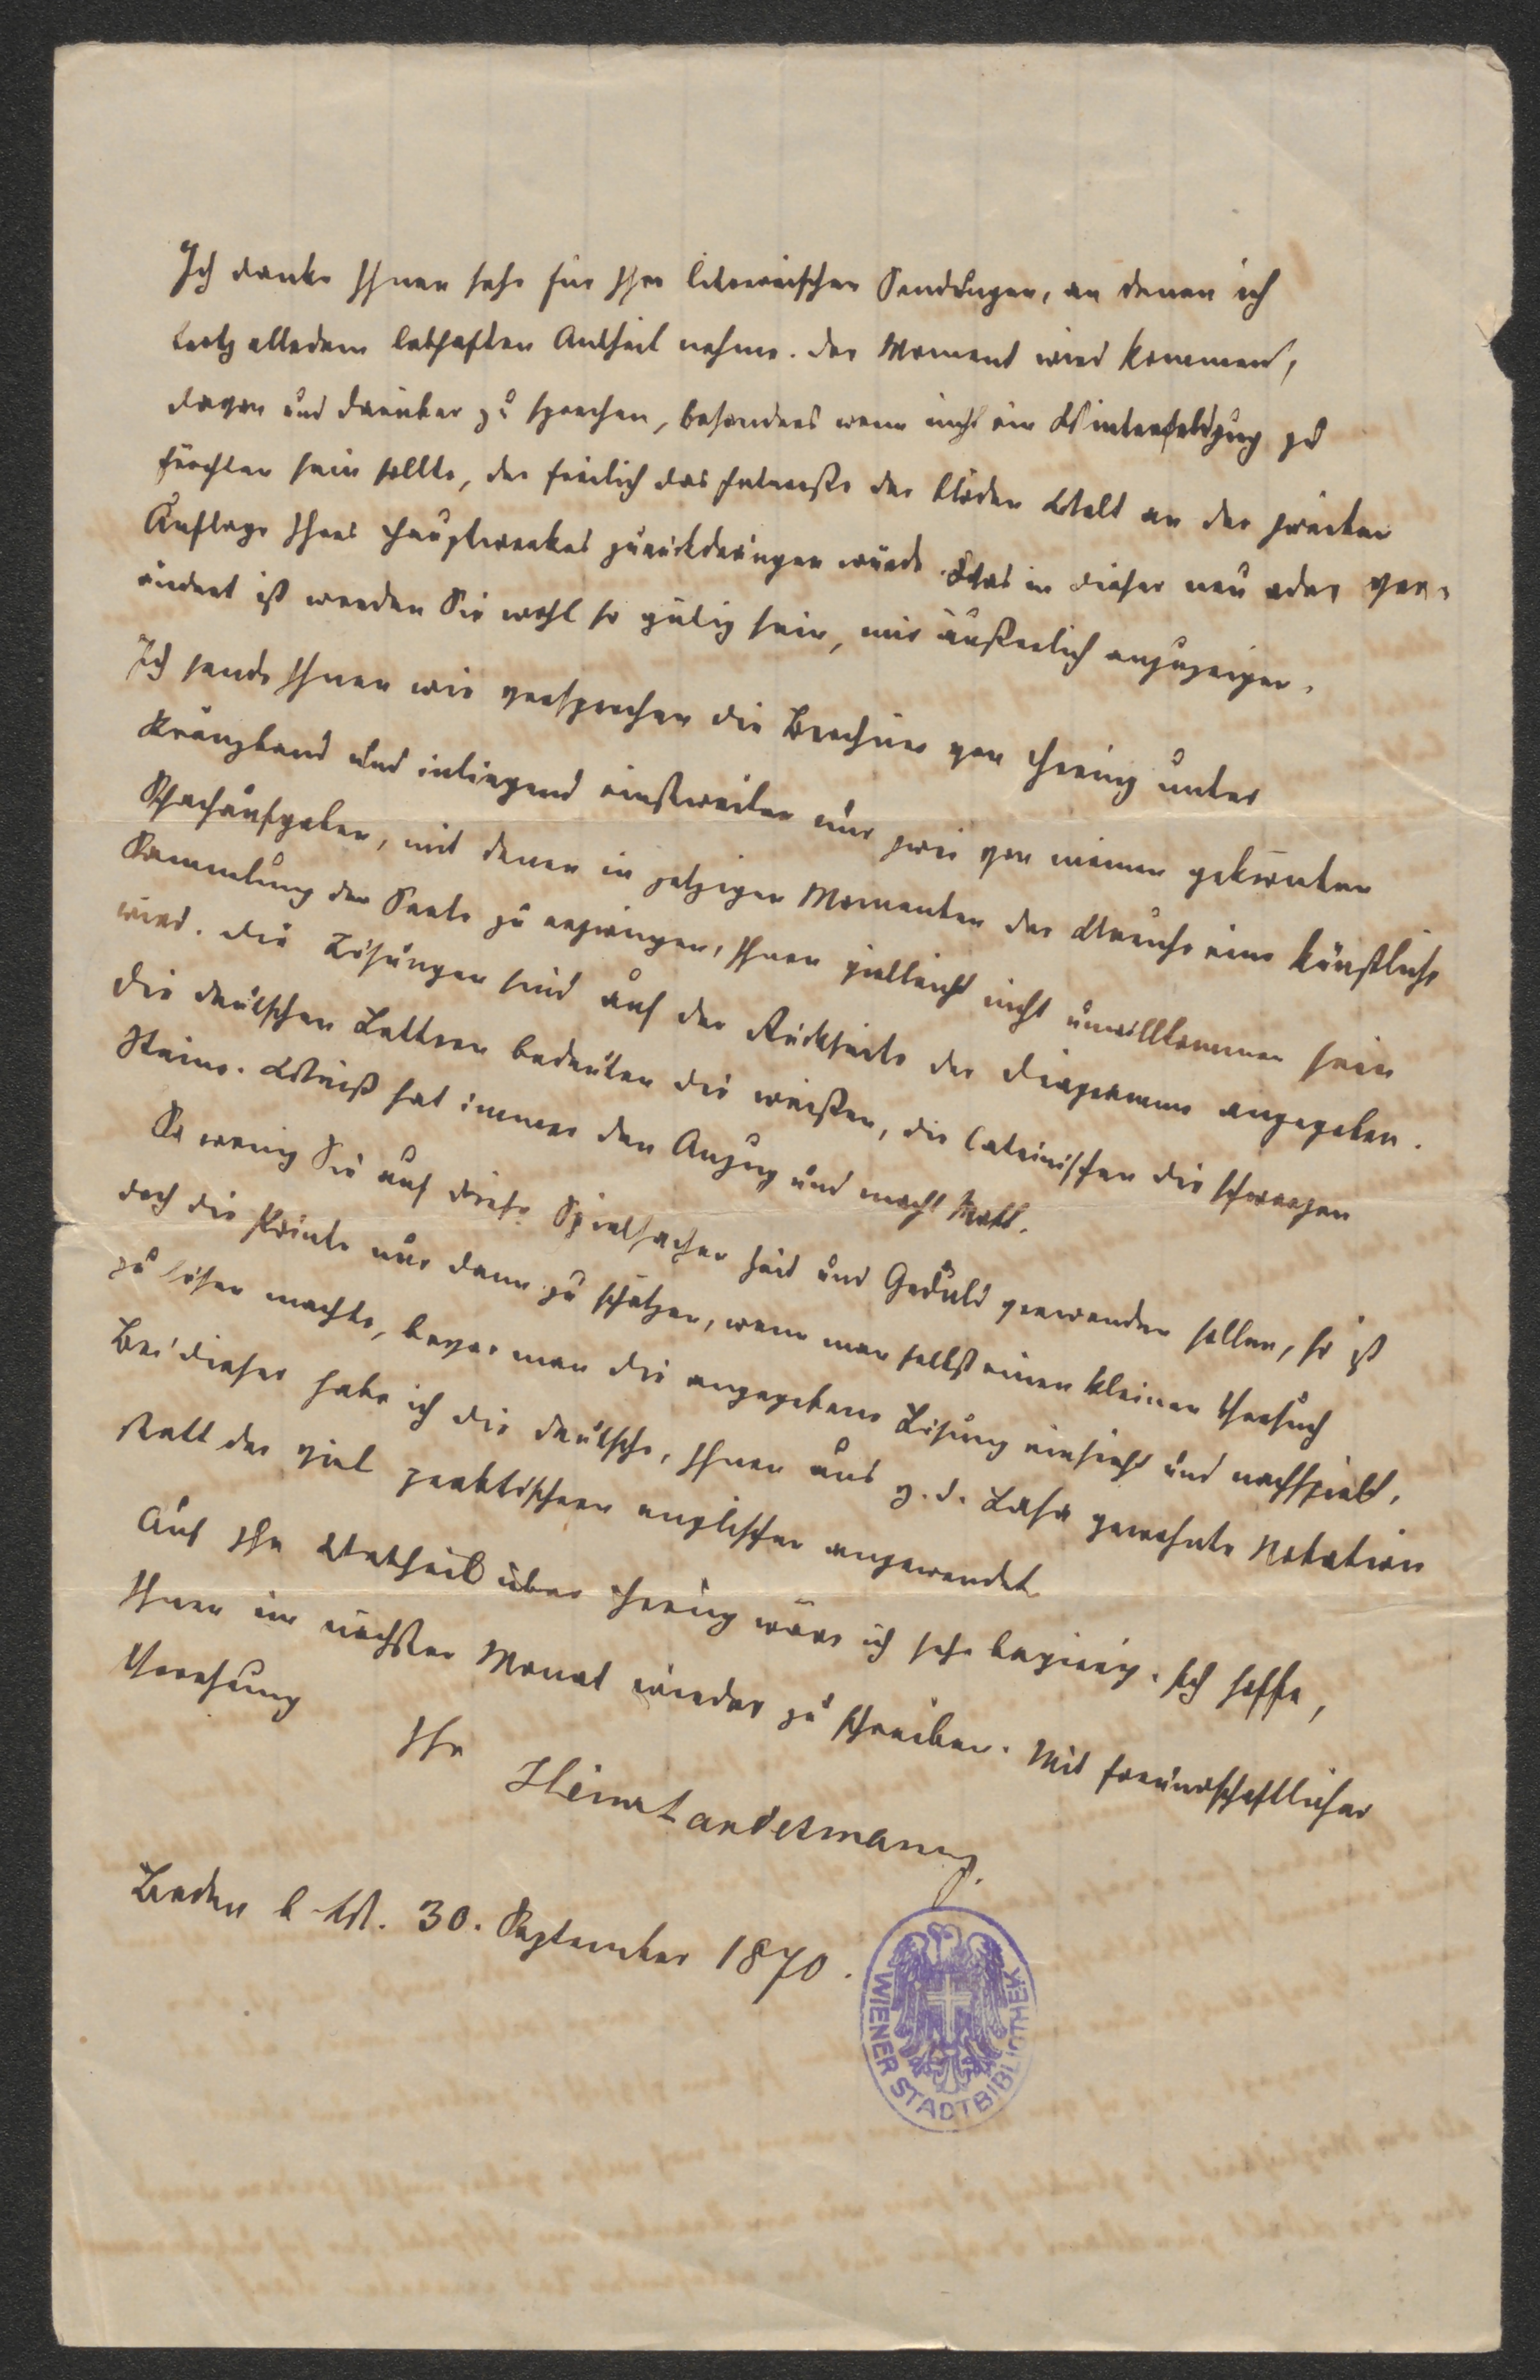 Ich danke Ihnen sehr für Ihre literarischen Sendungen, an denen ich
trotz alledem lebhaften Antheil nehme. Der Moment wird kommen,
davon und darüber zu sprechen, besonders wenn nicht ein Winterfeldzug zu
fürchten sein sollte, der freilich das Interesse der blöden Welt an der zweiten
Auflage Ihres Hauptwerkes zurückdrängen würde. Was in dieser neu oder ver-
ändert ist werden Sie wohl so gütig sein, mir äußerlich anzuzeigen.
Ich sende Ihnen wie versprochen die Brochure von Hering unter
Kreuzband und inliegend einstweilen nur zwei von meinen gekrönten
Schachaufgaben, mit denen in jetzigen Momenten der Unruhe eine künstliche
Sammlung der Seele zu erzwingen, Ihnen vielleicht nicht unwillkommen sein
wird. Die Lösungen sind auf der Rückseite der Diagramme angegeben.
Die deutschen Lettern bedeuten die weißen, die lateinischen die schwarzen
Steine. Weiß hat immer den Anzug und macht Matt.
So wenig Sie auf diese Spielsachen Zeit und Geduld verwenden sollen, so ist
doch die Pointe nur dann zu schätzen, wenn man selbst einen kleinen Versuch
zu lösen machte, bevor man die angegebene Lösung einsieht und nachspielt.
Bei dieser habe ich die deutsche, Ihnen aus v. d. Lasa gewohnte Notation
statt der viel praktischern englischen angewendet.
Auf Ihr Urtheil über Hering wäre ich sehr begierig. Ich hoffe,
Ihnen im nächsten Monat wieder zu schreiben. Mit freundschaftlicher
Verehrung
Ihr
Heinr Landesmann
Baden b. W. 30. September 1870.
WIENER STADTBIBLIOTHEK